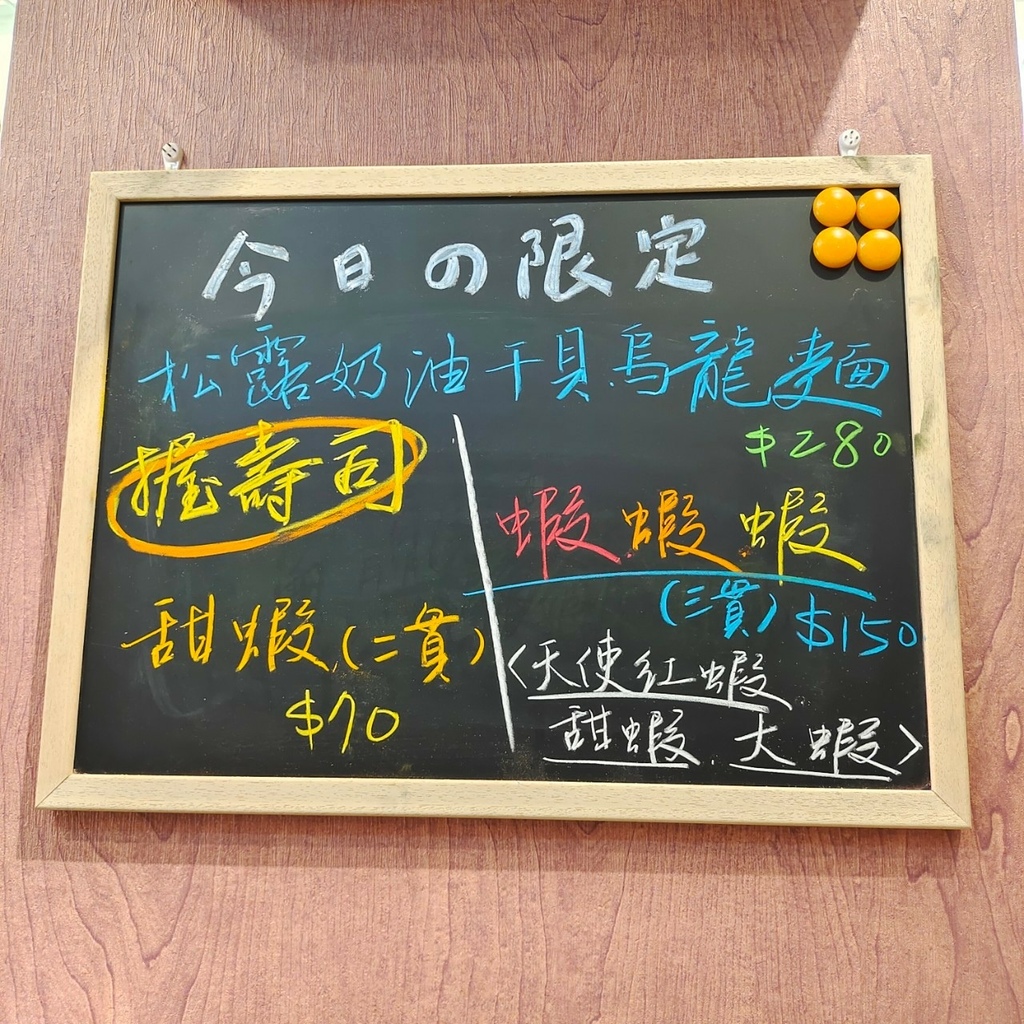 今日の限定
松露奶油干貝烏龍麵
$280
握壽司
甜蝦(二貫)
$70
蝦蝦蝦
(三貫) $150
〈天使紅蝦
甜蝦、大蝦〉